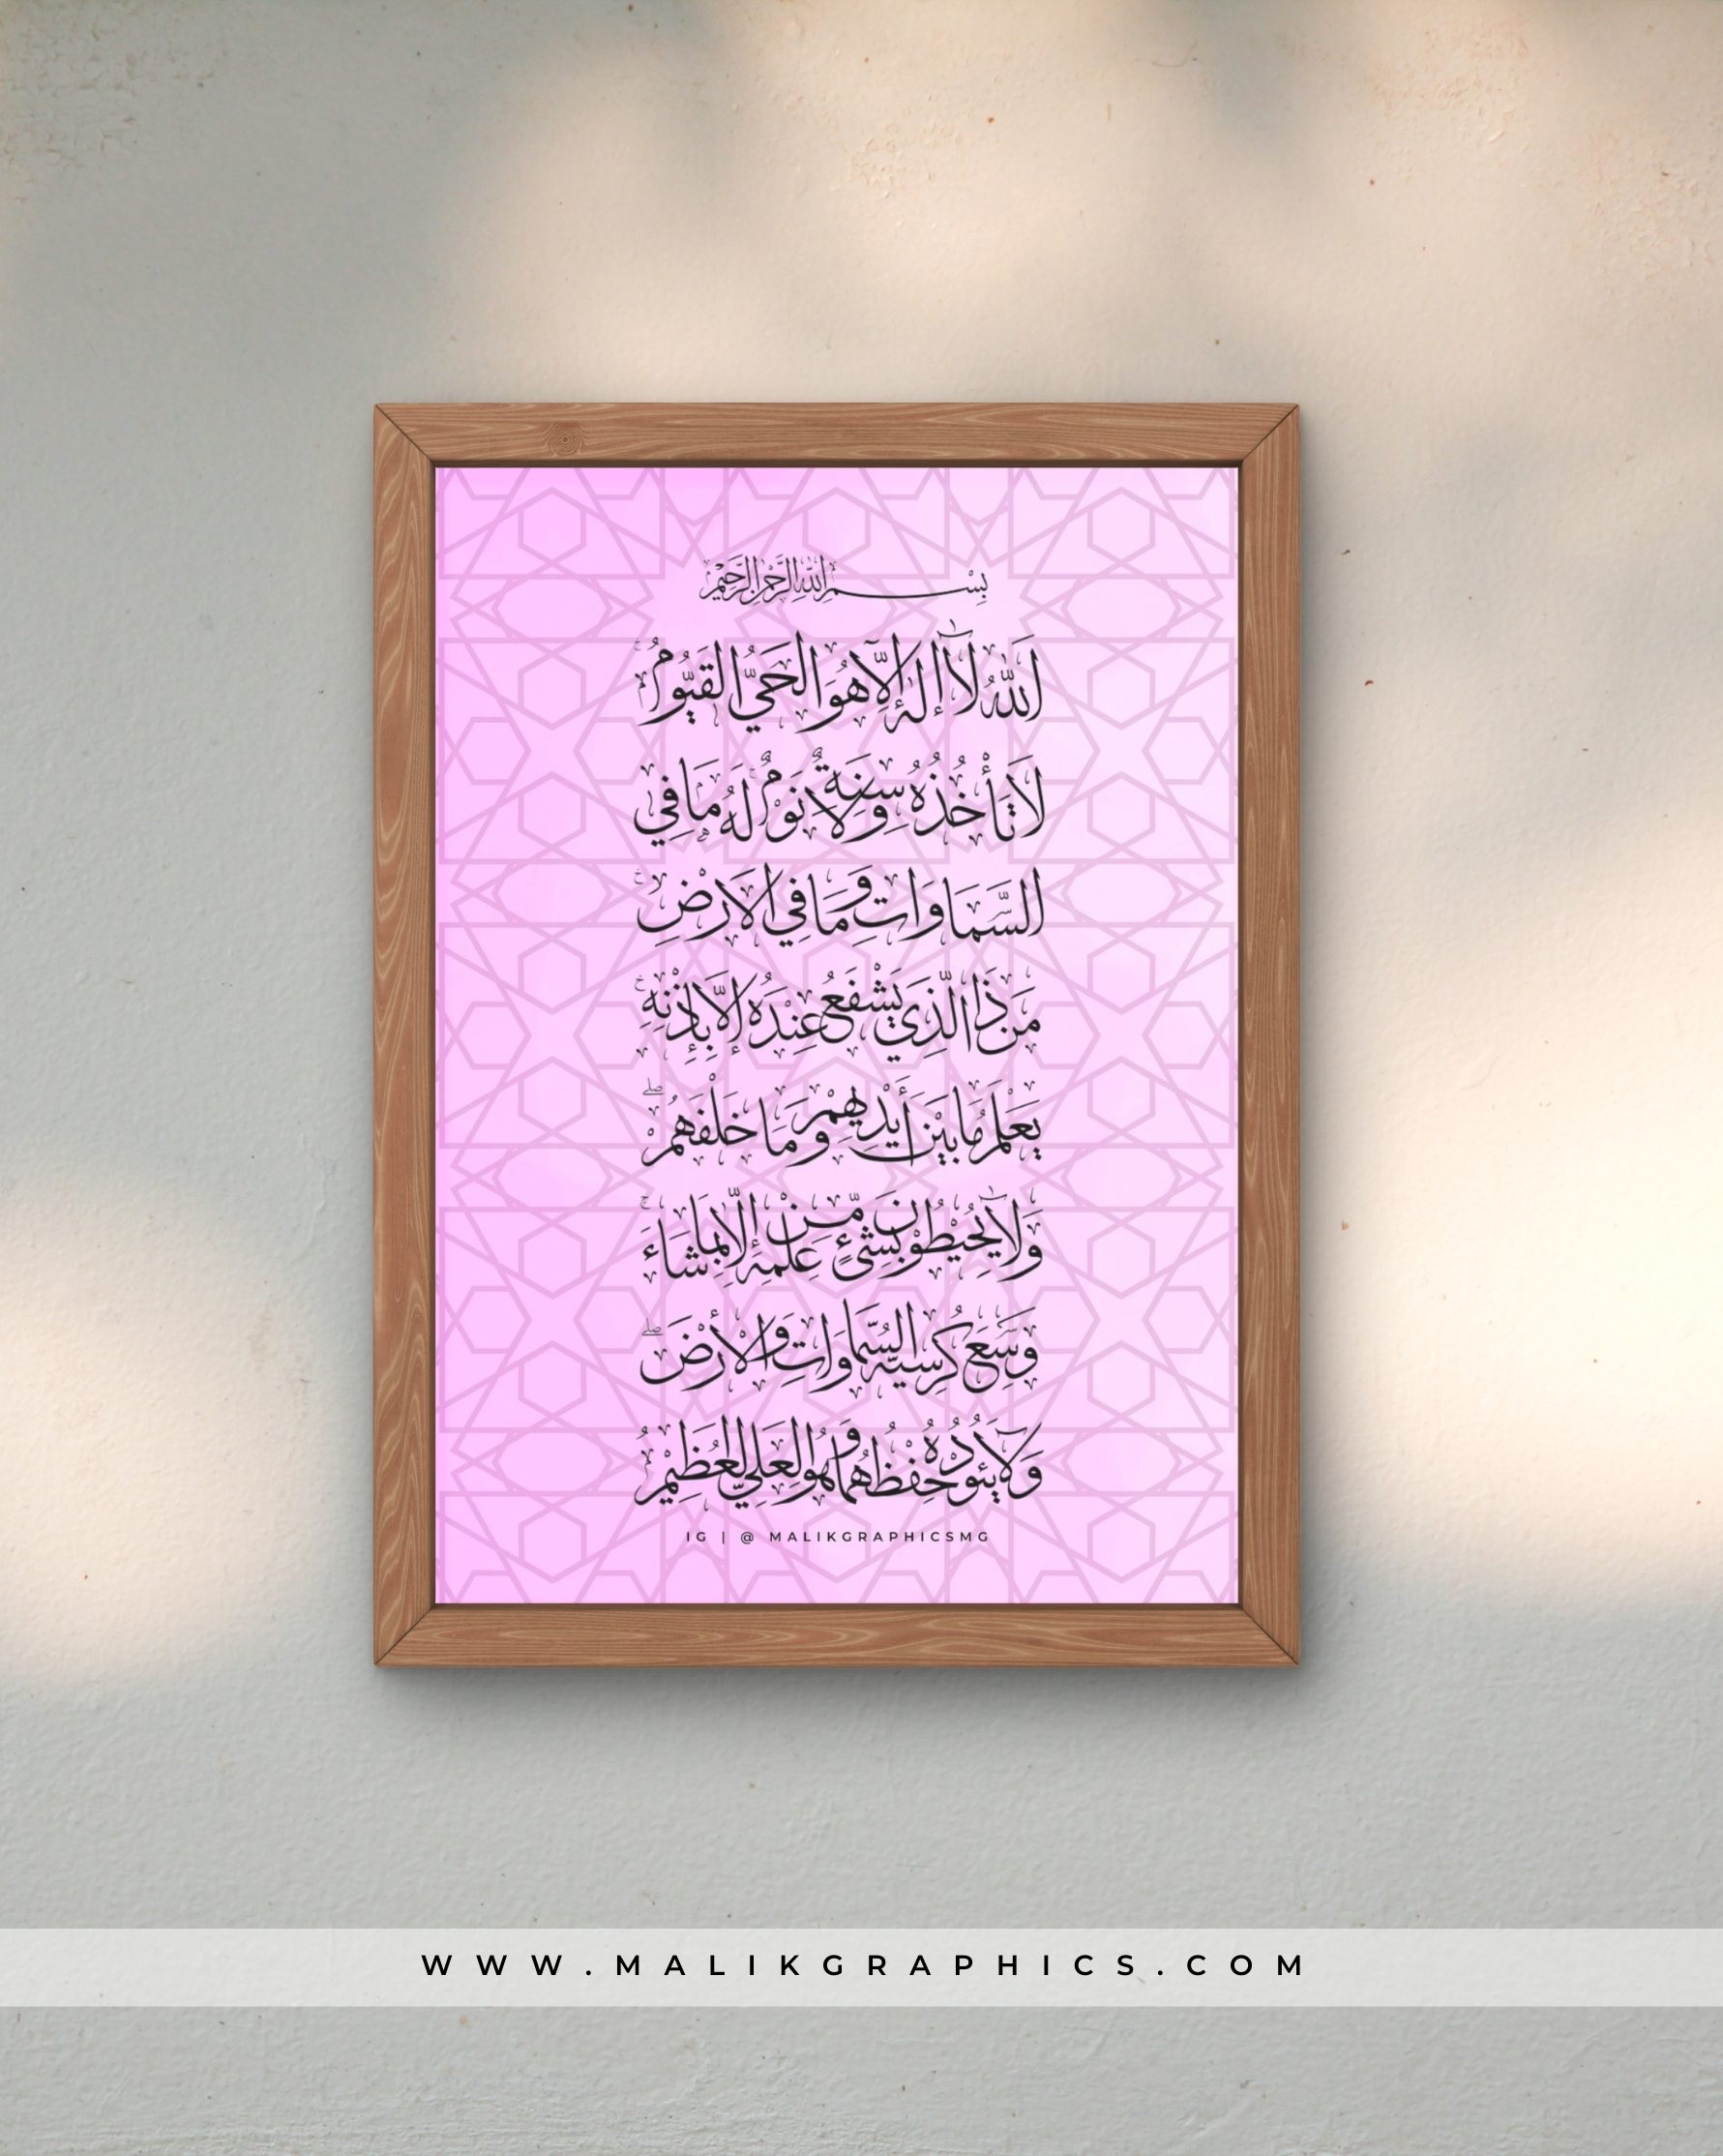 بِسْمِ اللهِ الرَّحْمٰنِ الرَّحِيْمِ
اَللّٰهُ لَآ إِلٰهَ إِلَّا هُوَ الْحَيُّ الْقَيُّومُ
لَا تَأْخُذُهُ سِنَةٌ وَلَا نَوْمٌ لَهُ مَا فِي
السَّمَاوَاتِ وَمَا فِي الْاَرْضِ
مَنْ ذَا الَّذِي يَشْفَعُ عِنْدَهُ إِلَّا بِإِذْنِهِ
يَعْلَمُ مَا بَيْنَ أَيْدِيهِمْ وَمَا خَلْفَهُمْ
وَلَا يُحِيْطُوْنَ بِشَيْءٍ مِّنْ عِلْمِهِ إِلَّا بِمَا شَاءَ
وَسِعَ كُرْسِيُّهُ السَّمَاوَاتِ وَالْأَرْضَ
وَلَا يَئُودُهُ حِفْظُهُمَا وَهُوَ الْعَلِيُّ الْعَظِيْمُ
IG | @ MALIKGRAPHICSMG
WWW.MALIKGRAPHICS.COM